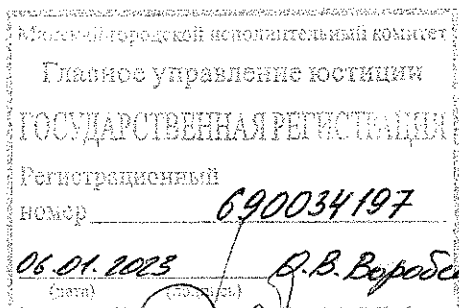 Минский городской исполнительный комитет
Главное управление юстиции
ГОСУДАРСТВЕННАЯ РЕГИСТРАЦИЯ
Регистрационный
номер 690034197
06.01.2023 О.В. Воробе
(дата) (подпись)